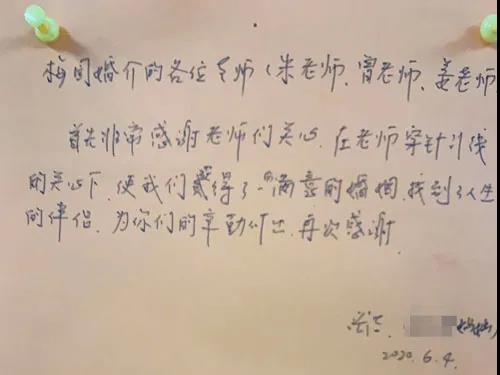 梅园婚介的各位老师（朱老师、曾老师、姜老师
首先非常感谢老师们关心，在老师穿针引线
的关心下，使我们获得了"满意的婚姻，找到了人生
的伴侣，为你们的辛勤付出，再次感谢
2020.6.4.